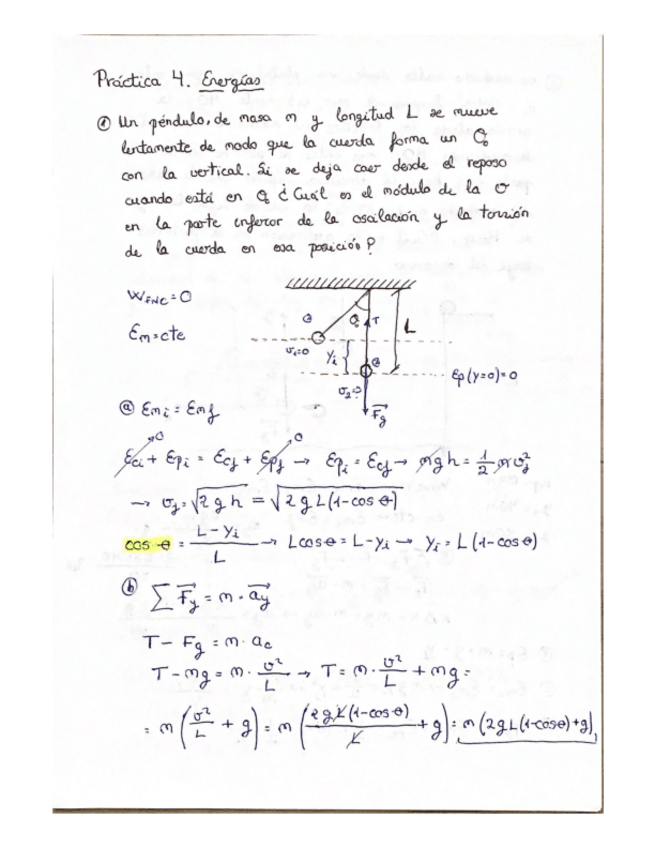 Práctica 4. Energías
① Un péndulo, de masa m y longitud L se mueve
lentamente de modo que la cuerda forma un θ₀
con la vertical. Si se deja caer desde el reposo
cuando está en θ, ¿Cuál es el módulo de la v
en la parte inferor de la oscilación y la torsión
de la cuerda en esa posición?
W_FNC = 0
Em = cte
θ₀ T L
v₁=0 yi
Ep (y=0) = 0
v₂=?
F⃗g
ⓐ Emi = Emf
Eci⁰ + Epi = Ecf + Epf⁰ → Epi = Ecf → mgh = 1/2 m vf²
→ vf = √(2gh) = √(2gL(1-cos θ))
cos θ = (L - yi)/L → L cos θ = L - yi → yi = L (1-cos θ)
ⓑ ∑ F⃗y = m · a⃗y
T - Fg = m · ac
T - mg = m · v²/L → T = m · v²/L + mg =
= m (v²/L + g) = m (2gL(1-cos θ)/L + g) = m (2gL(1-cos θ) + g)